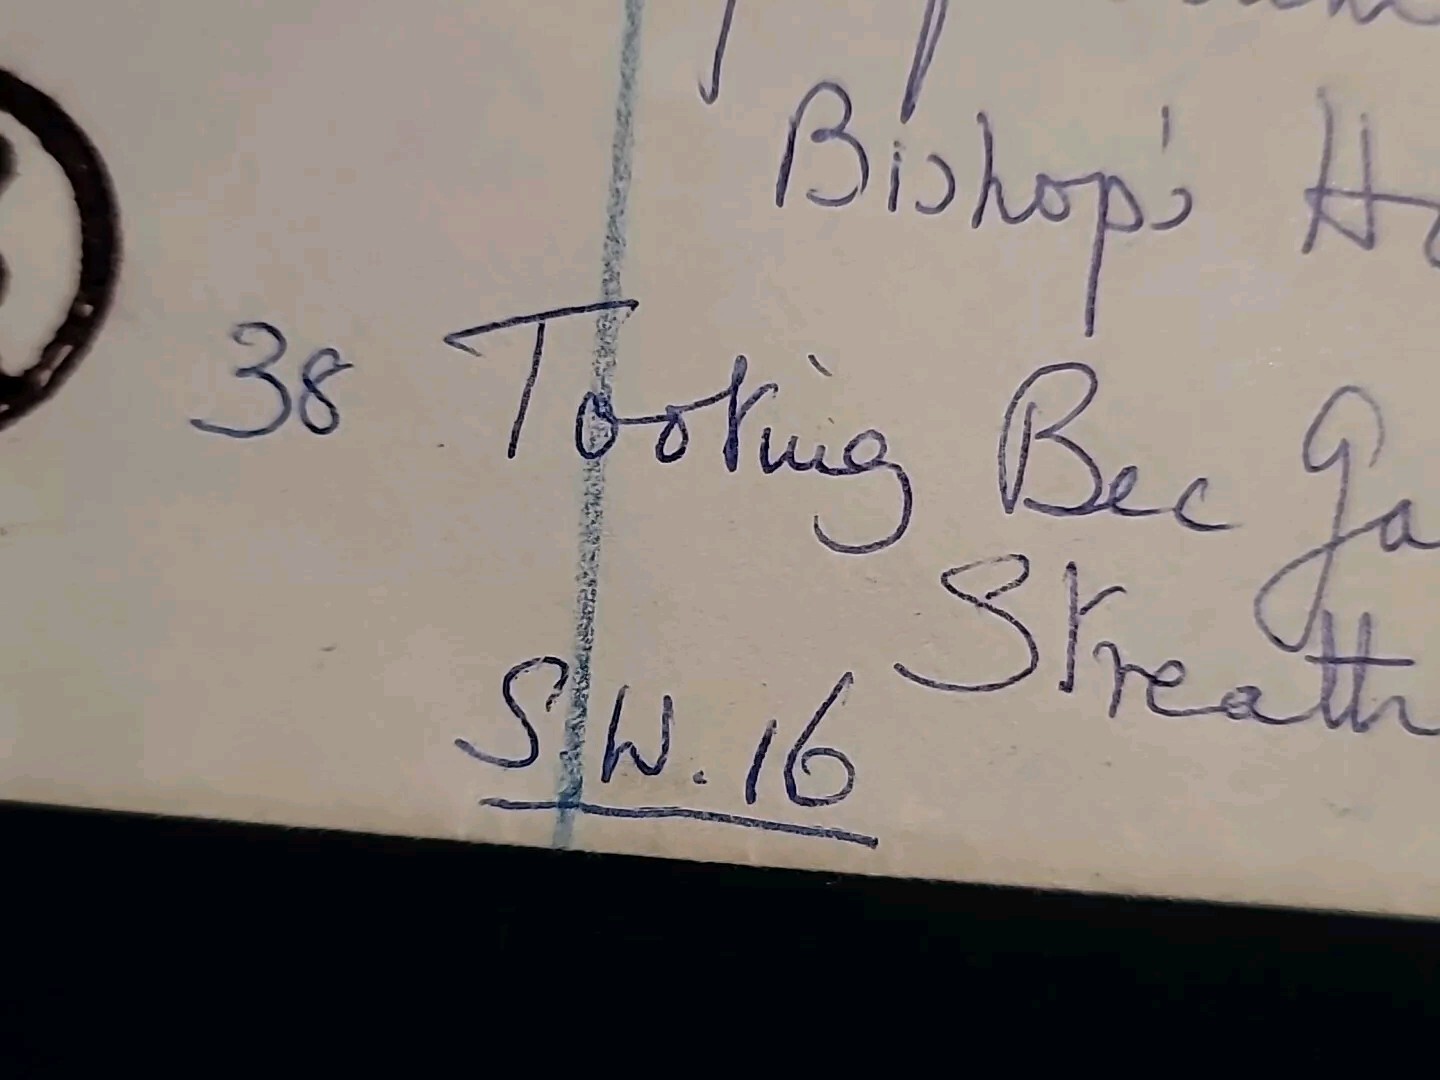 Bishop's Ho
38 Tooting Bec Ga
Streath
S.W.16